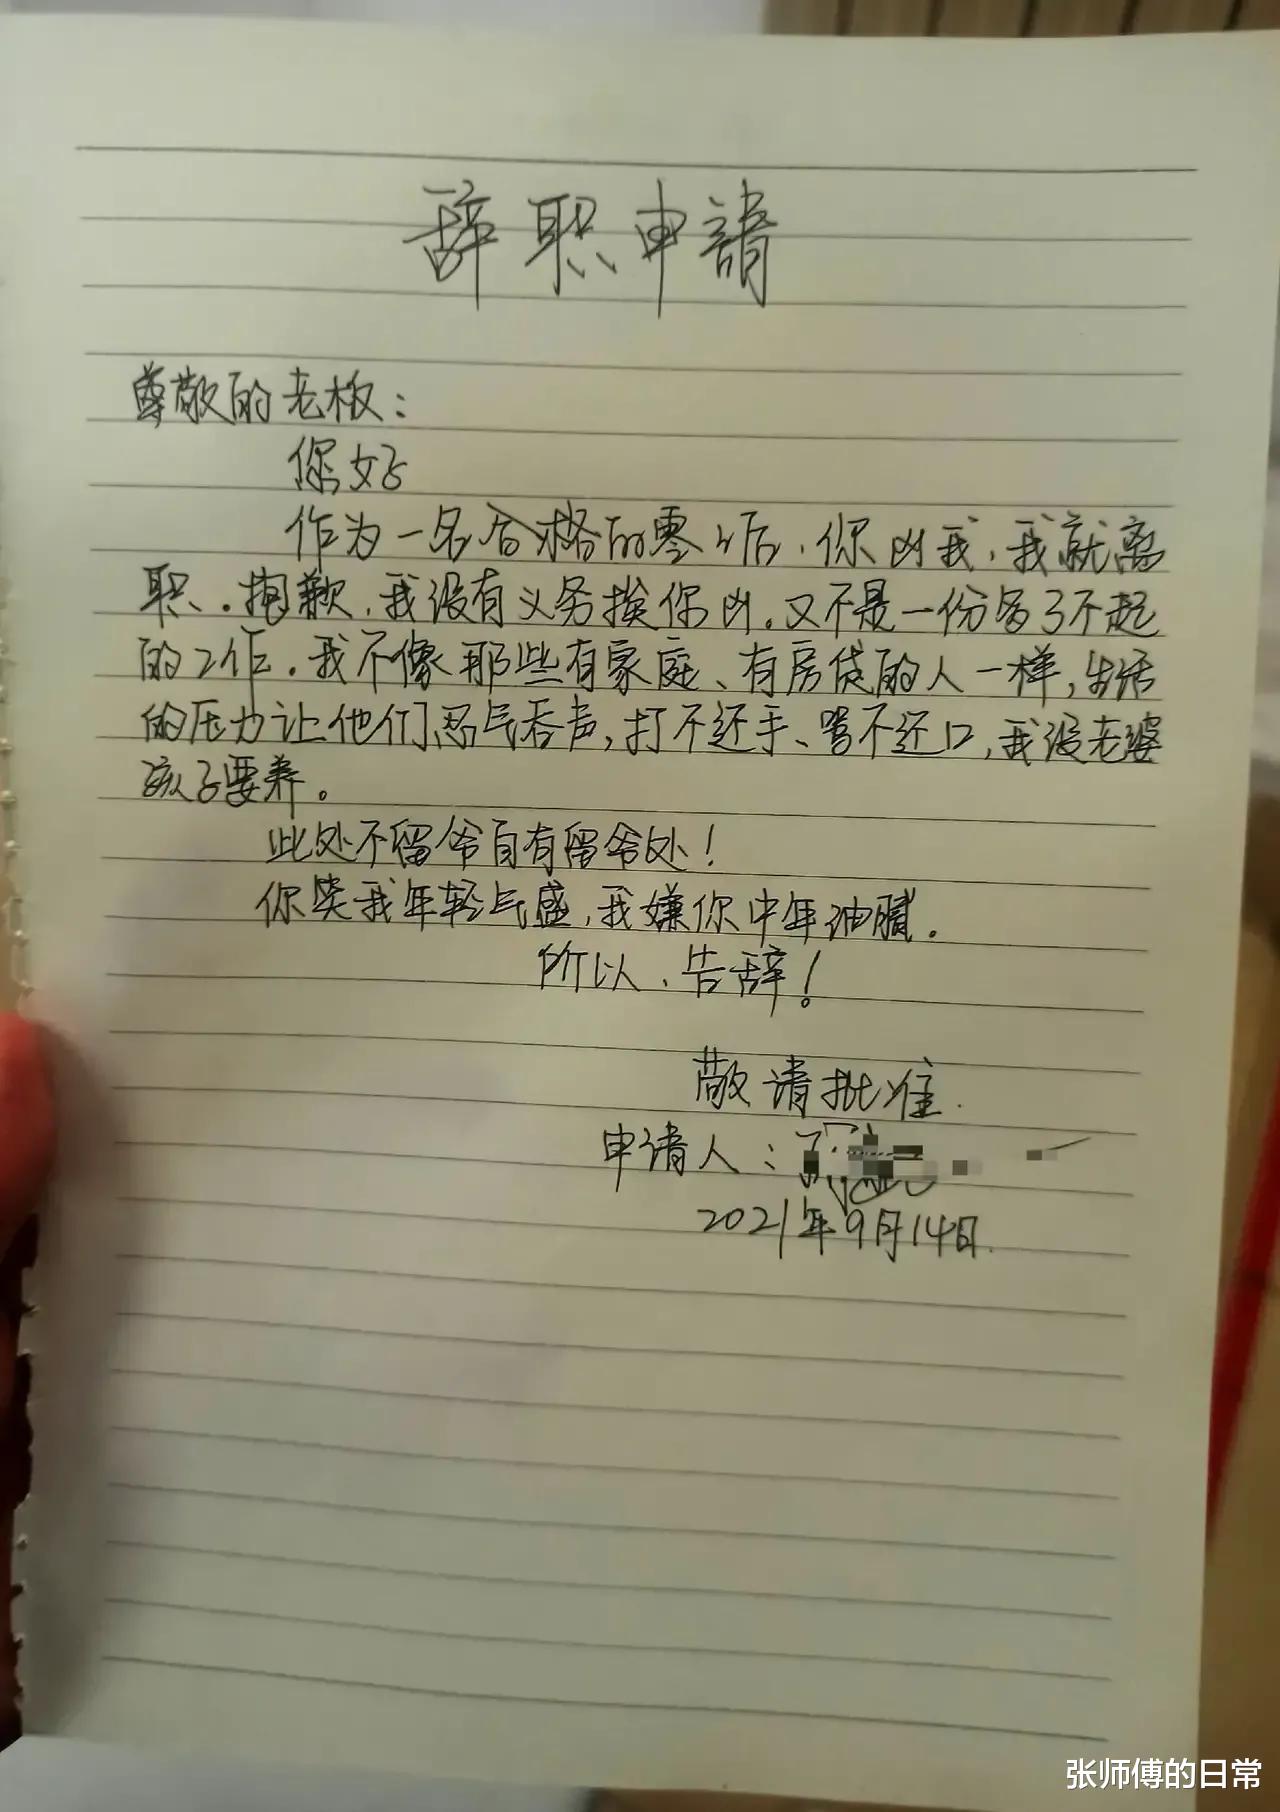 辞职申請
尊敬的老板：
您好
作为一名合格的零2后，你凶我，我就离
职。抱歉，我没有义务挨你凶。又不是一份多了不起
的工作。我不像那些有家庭、有房贷的人一样，生活
的压力让他们忍气吞声，打不还手、骂不还口，我没老婆
孩子要养。
此处不留爷自有留爷处！
你笑我年轻气盛，我嫌你中年油腻。
所以、告辞！
敬请批准.
申请人：
2021年9月14日.
张师傅的日常